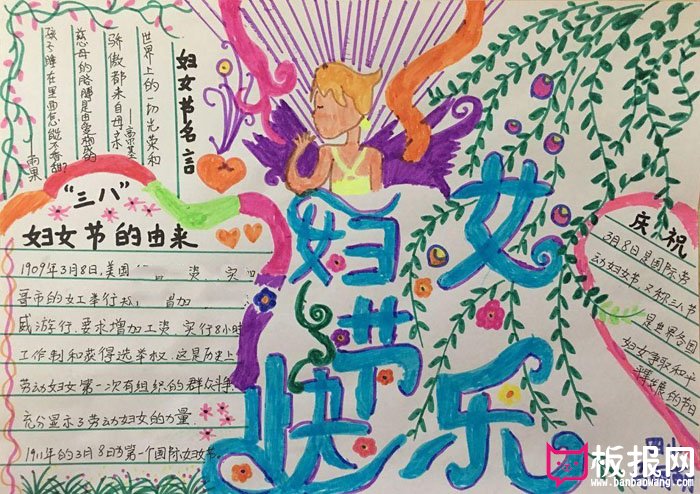 妇女节名言
世界上的一切光荣和
骄傲都来自母亲
——高尔基
慈母的胳膊是由爱构成的
孩子睡在里面怎能不香甜?
——雨果
“三八”
妇女节的由来
1909年3月8日,美国 资 实
哥市的女工举行 增加
威游行,要求增加工资,实行8小时
工作制和获得选举权.这是历史上
劳动妇女第一次有组织的群众斗争
充分显示了劳动妇女的力量.
1911年的3月8日为第一个国际妇女节.
妇女
节
快乐
庆祝
3月8日是国际劳
动妇女节,又称三八节
是世界各国
妇女争取和平
发展的节日
板报网
www.banbaowang.com